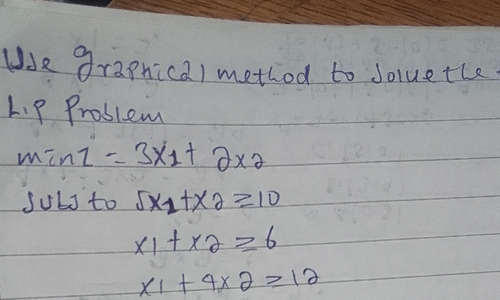 Use graphical method to solve the
L.P Problem
minZ = 3x1 + 2x2
Subs to 5x1+x2 ≥10
x1 + x2 ≥ 6
x1 + 4x2 ≥ 12